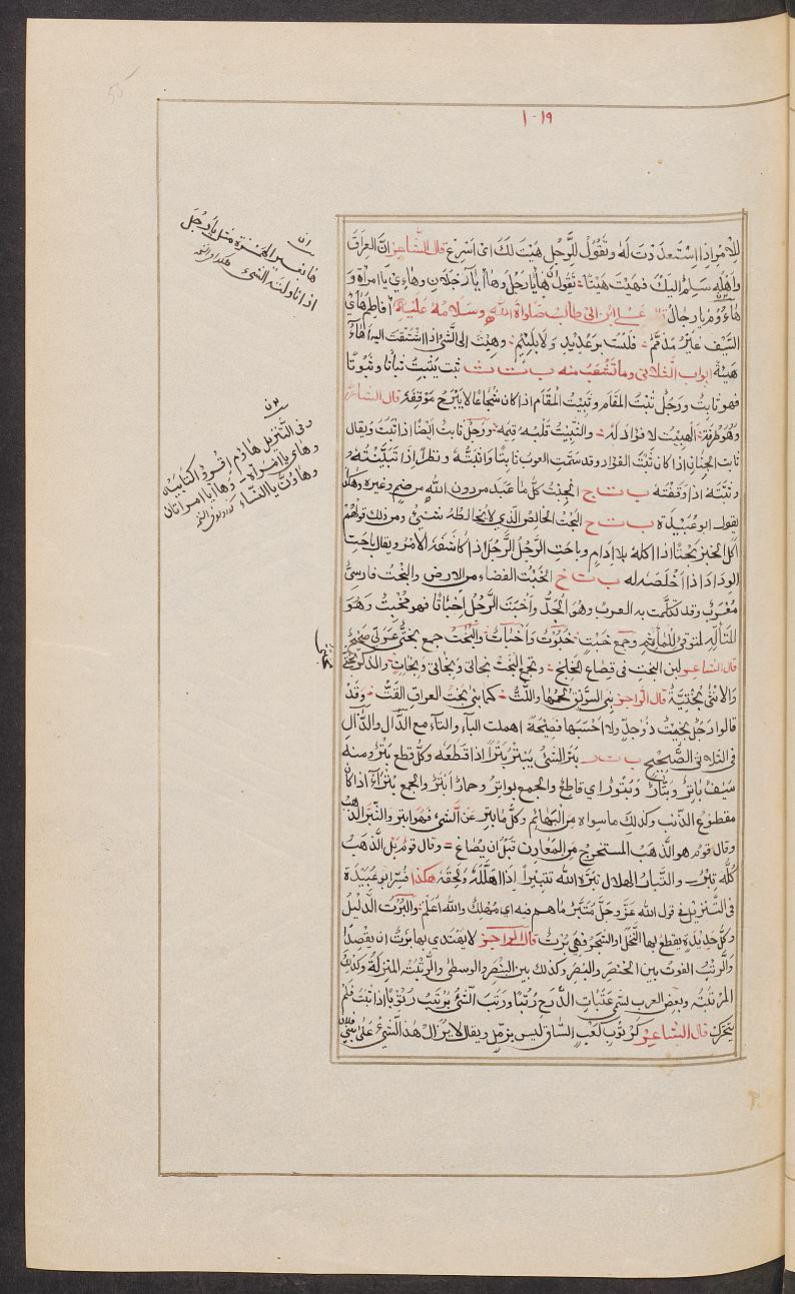 ١٠١٩
للامر اذا استعددت له وتقول للرجل هيت لك اى اسرع قال الشاعر ان العراق
واهله سلم اليك فهيت هيتا تقول ها يا رجل وها أ يا رجلان وهاءي يا امراة و
هاؤم يا رجال على ابن ابى طالب صلواة الله وسلامه عليه أفاطم هاءى
السيف غير مذمم فلست برعديد ولا بلئيم وهئت الى الشئ اذا اشتقت اليه أهاء
هيئة ابواب الثلاثى وما تشعب منه ب ت ث ثبت يثبت ثباتا وثبوتا
فهو ثابت ورجل ثبت المقام وثبيت المقام اذا كان شجاعا لا يبرح موقفه قال الشاعر
وهو طرفة الهبيت لا فؤاد له والثبيت قلبه قيمه ورجل ثابت ايضا اذا ثبت ويقال
ثابت الجنان اذا كان ثبت الفؤاد وقد سمت العرب ثابتا واثبته ونظر اذا تبيّنته و
وثبته اذا وقفته ب ت ج الجبت كل ما عبد من دون الله من صنم وغيره وهكذا
يقول ابو عبيدة ب ت ح البحت الخالص الذي لا يخالطه شئ ومن ذلك قولهم
اكل الخبز بحتا اذا اكله بلا ادام وباحت الرجل الرجل اذا كاشفه الامر ويقال باحت
الوداد اذا اخلصه له ب ت خ الخبت الفضاء من الارض والبخت فارسى
معرب وقد تكلمت به العرب وهو الجد واخبت الرجل اخباتا فهو مخبت وهو
المتأله المتوقى للمأثم وجمع خبت خبوت واخبات والبخت جمع بختى عربى صحيح
قال الشاعر لبن البخت فى قصاع الخلنج وتجمع البخت بخاتى وبخاتى وبخات والذكر بختى
والانثى بختية قال الراجز بنى السويق لحمها واللت كما بنى بخت العراق القت وقد
قالوا رجل بخيت ذو جد ولا احسبها فصيحة اهملت الباء والتاء مع الدال والذال
فى الثلاثى الصحيح ب ت ر بتر الشئ يبتر بترا اذا قطعه وكل قطع بتر ومنه
سيف باتر وبتار وبتور اي قاطع والجمع بواتر وحمار ابتر والجمع بتر اذا كان
مقطوع الذنب وكذلك ما سواه من البهائم وكل ما بتر عن الشئ فهو ابتر والتبر الذهب
وقال قوم هو الذهب المستخرج من المعادن قبل ان يصاغ = وقال قوم بل الذهب
كله تبر والتبار الهلاك تبره الله تتبيرا اذا اهلكه ومحقه هكذا فسر ابو عبيدة
فى التنزيل فى قول الله عز وجل متبر ما هم فيه اى مهلك والله أعلم والبرت الدليل
وكل حديدة يقطع بها النخل او الشجر فهى برت قال الراجز لا يهتدى بها برت ان يقصدا
والرتب الفوت بين الخنصر والبنصر وكذلك بين البنصر والوسطى والرتبة المنزلة وكذلك
المرتبة وبعض العرب يسمى عتبات الدرج رتبا ورتب الشئ يرتب رتوبا اذا ثبت فلم
يتحرك قال الشاعر كرتوب كعب الساق ليس بزمل ويقال لا يزال هذا الشئ على بنى فلان
ان
هكذا
اذا ناولته الشئ
ون
وفى التنزيل هاؤم اقرؤا كتابيه
وهائى يا امراة وها ايا امراتان
وهاؤن يا النساء